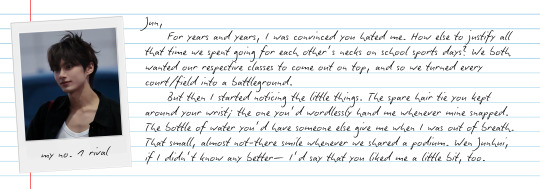 Jun,
For years and years, I was convinced you hated me. How else to justify all
that time we spent going for each other's necks on school sports days? We both
wanted our respective classes to come out on top, and so we turned every
court/field into a battleground.
But then I started noticing the little things. The spare hair tie you kept
around your wrist; the one you'd wordlessly hand me whenever mine snapped.
The bottle of water you'd have someone else give me when I was out of breath.
That small, almost not-there smile whenever we shared a podium. Wen Junhui,
if I didn't know any better— I'd say that you liked me a little bit, too.
my no. 1 rival